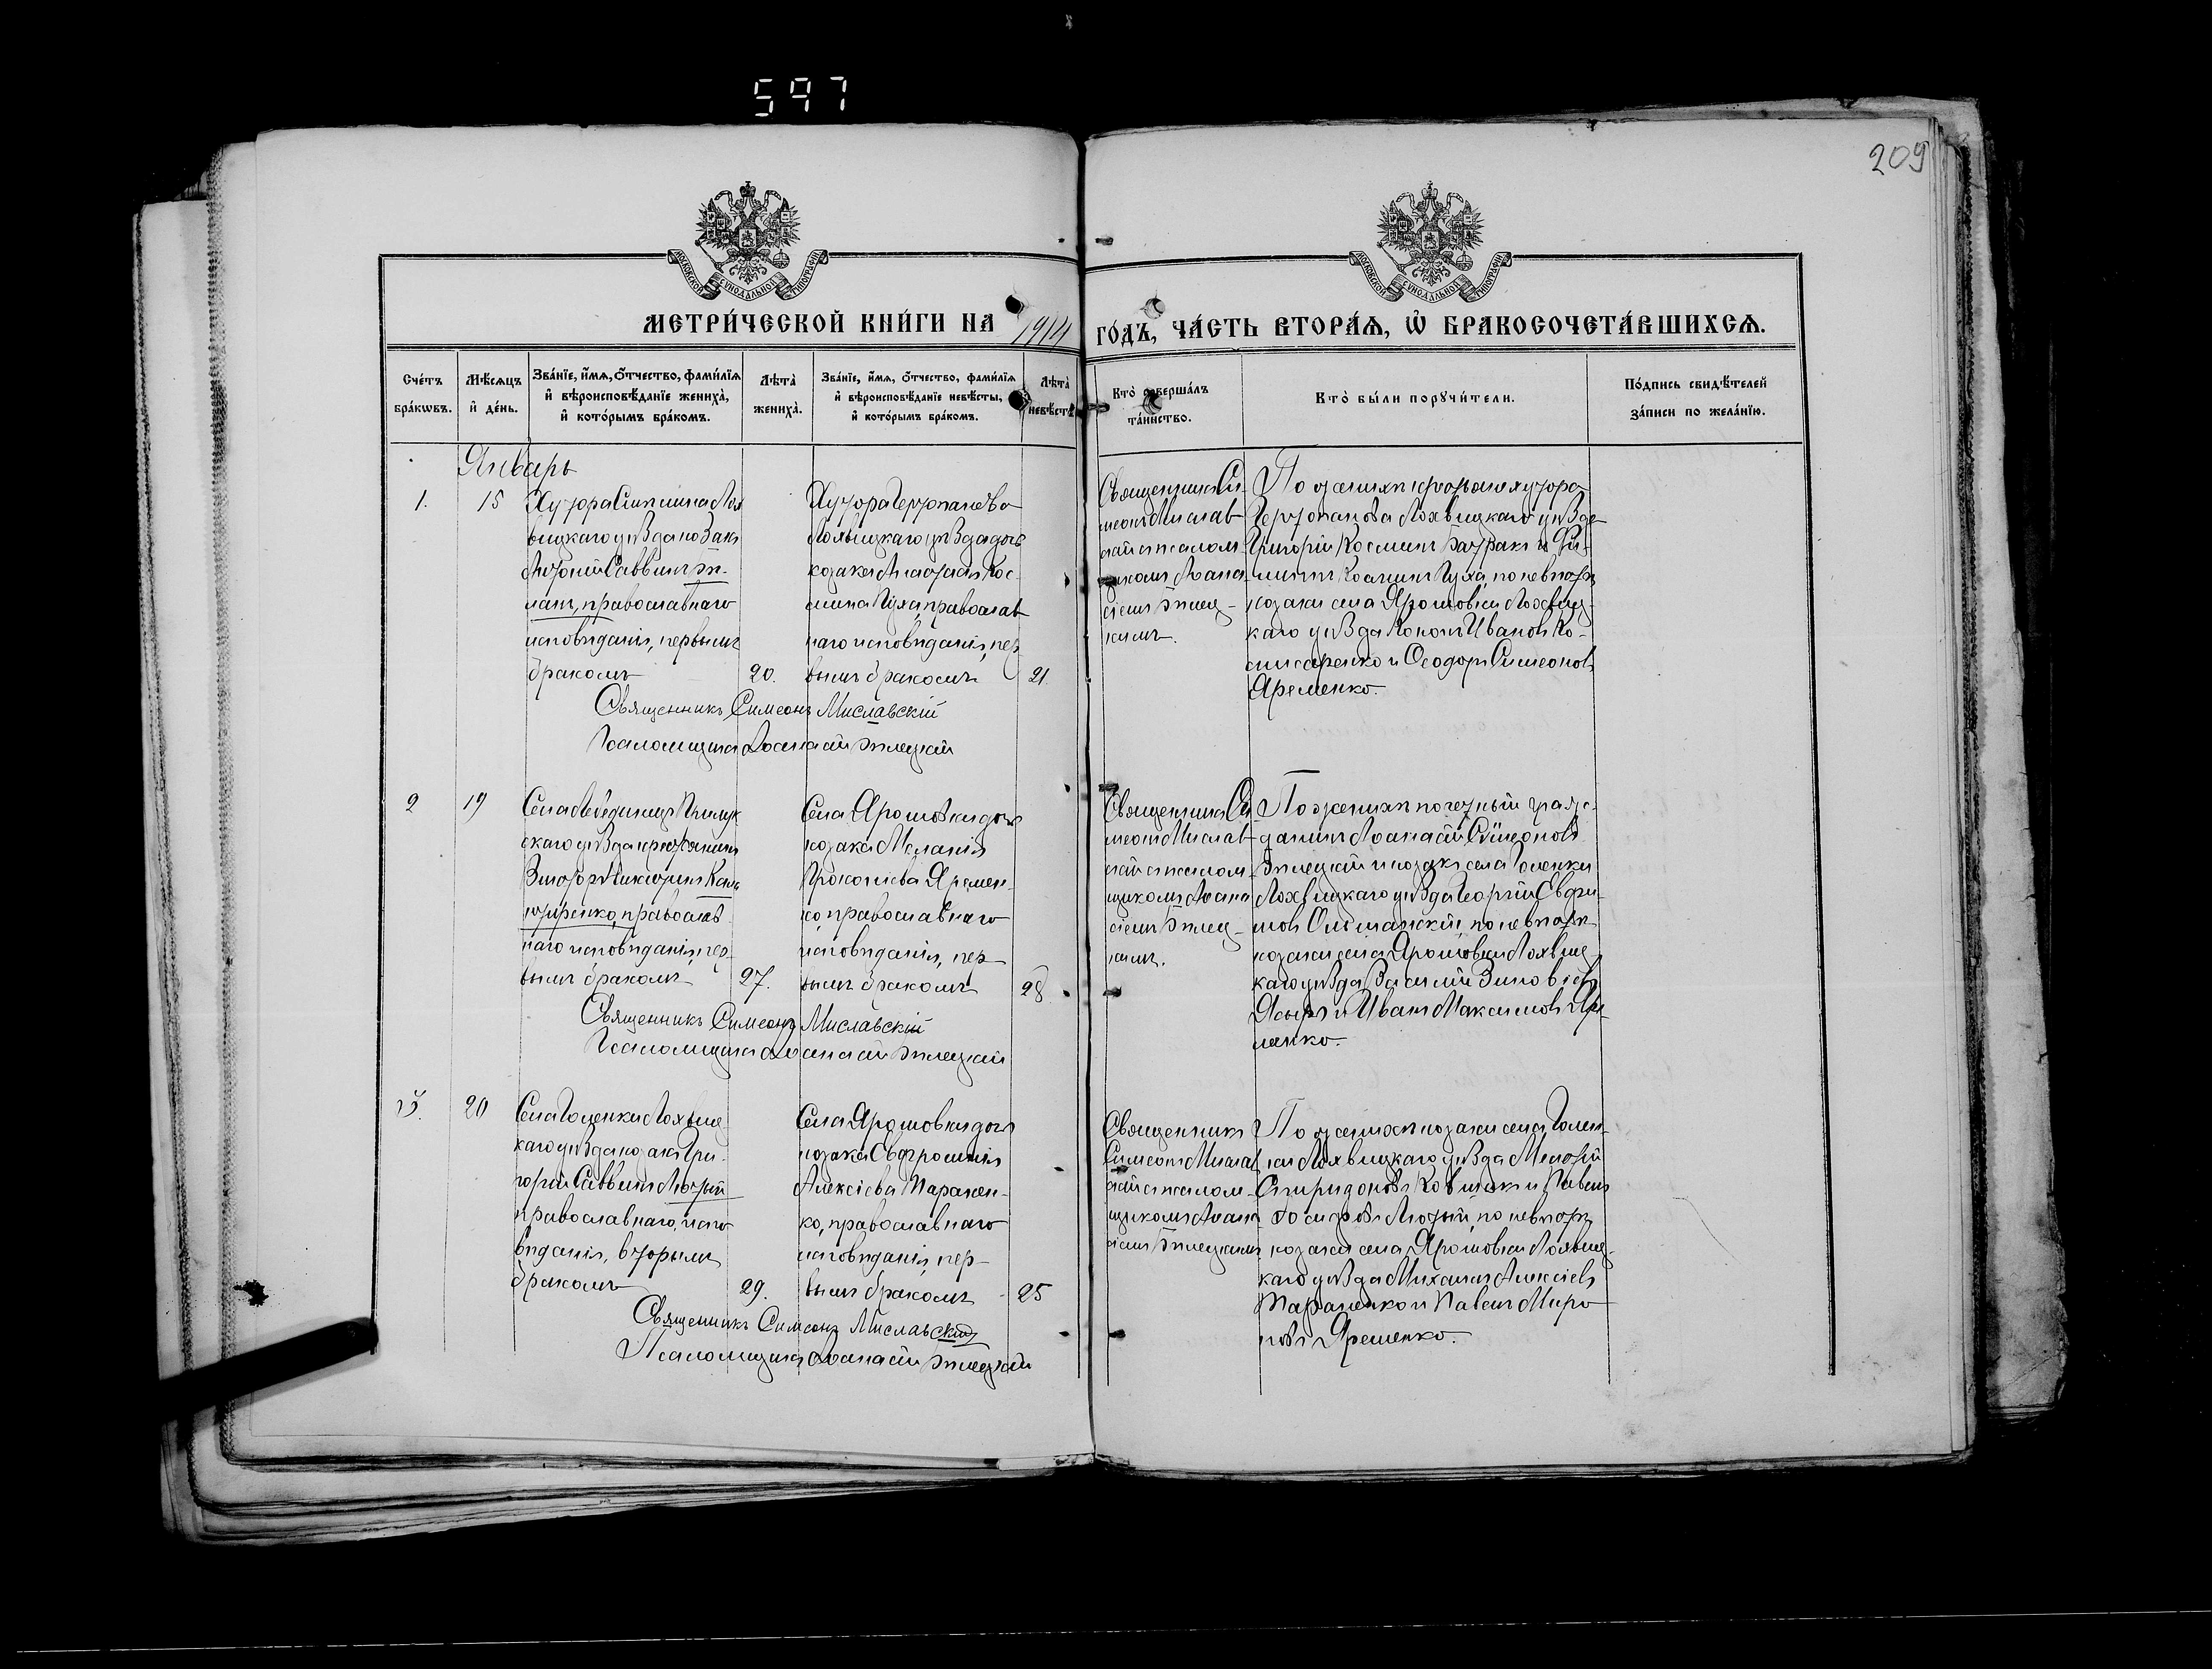 597
209
МОСКОВСКОЙ СѴНОДАЛЬНОЙ ТИПОГРАФІИ
МОСКОВСКОЙ СѴНОДАЛЬНОЙ ТИПОГРАФІИ
МЕТРИ́ЧЕСКОЙ КНИ́ГИ НА 1914 ГО́ДЪ, ЧА́СТЬ ВТОРА́Ѧ, Ѽ БРАКОСОЧЕТА́ВШИХСѦ.
Сче́тъ бра́кѡвъ.
Мѣ́сѧцъ и҆ де́нь.
Зва́нїе, и҆́мѧ, ѻ҆́тчество, фами́лїѧ и҆ вѣроисповѣ́данїе жениха̀, и҆ кото́рымъ бра́комъ.
Лѣта̀ жениха̀.
Зва́нїе, и҆́мѧ, ѻ҆́тчество, фами́лїѧ и҆ вѣроисповѣ́данїе невѣ́сты, и҆ кото́рымъ бра́комъ.
Лѣта̀ невѣ́сты
Кто̀ соверша́лъ та́инство.
Кто̀ бы́ли порꙋчи́тели.
По́дпись свидѣ́телей за́писи по жела́нїю.
Январь
1.
15
Хутора Лох
вицкаго уѣзда козакъ
Саввинъ
православнаго
исповѣданія, первымъ
бракомъ
20.
Хутора
Лохвицкаго уѣзда дочь
козака Кос-
мина Пуха, православ
наго исповѣданія, пер
вымъ бракомъ
21.
Священникъ Си-
меонъ Мислав-
скій съ псалом-
щикомъ Аѳана-
сіемъ Бѣлец-
кимъ.
По женихѣ хутора
Лохвицкаго уѣзда
Григорій Косминъ и Фи-
Косминъ Пуха, по невѣстѣ
козаки села Ярошовки Лохвиц-
каго уѣзда Кононъ Ивановъ Ко-
и Ѳеодоръ Симеоновъ
Яременко.
Священникъ Симеонъ Миславскій
Псаломщикъ Аѳанасій Бѣлецкій
2
19
Села Прилук
скаго уѣзда крестьянинъ
православ-
наго исповѣданія, пер-
вымъ бракомъ
27.
Села Ярошовки дочь
козака Меланія
Прокопіева Яремен-
ко, православнаго
исповѣданія, пер-
вымъ бракомъ
28
Священникъ Си
меонъ Мислав-
скій съ псалом-
щикомъ Аѳана
сіемъ Бѣлец-
кимъ.
По женихѣ почетный граж-
данинъ Аѳанасій Симеоновъ
Бѣлецкій и козакъ села Голенки
Лохвицкаго уѣзда Георгій Евфи-
мовъ по невѣстѣ
козаки села Ярошовки Лохвиц
каго уѣзда Василій Зиновіевъ
и Иванъ Максимовъ Яре-
менко.
Священникъ Симеонъ Миславскій
Псаломщикъ Аѳанасій Бѣлецкій
3.
20
Села Голенки Лохвиц
каго уѣзда козакъ Гри-
горій Саввинъ Лютый
православнаго испо
вѣданія, вторымъ
бракомъ
29.
Села Ярошовки дочь
козака Евфросинія
Алексіева Таранен-
ко, православнаго
исповѣданія, пер-
вымъ бракомъ
25
Священникъ
Симеонъ Мислав
скій съ псалом-
щикомъ Аѳана
сіемъ Бѣлецкимъ
По женихѣ козаки села Голен-
ки Лохвицкаго уѣзда
Спиридоновъ и Павелъ
Лютый, по невѣстѣ
козаки села Ярошовки Лохвиц-
каго уѣзда Михаилъ Алексіевъ
Тараненко и Павелъ Миро
новъ Яременко.
Священникъ Симеонъ Миславскій
Псаломщикъ Аѳанасій Бѣлецкій